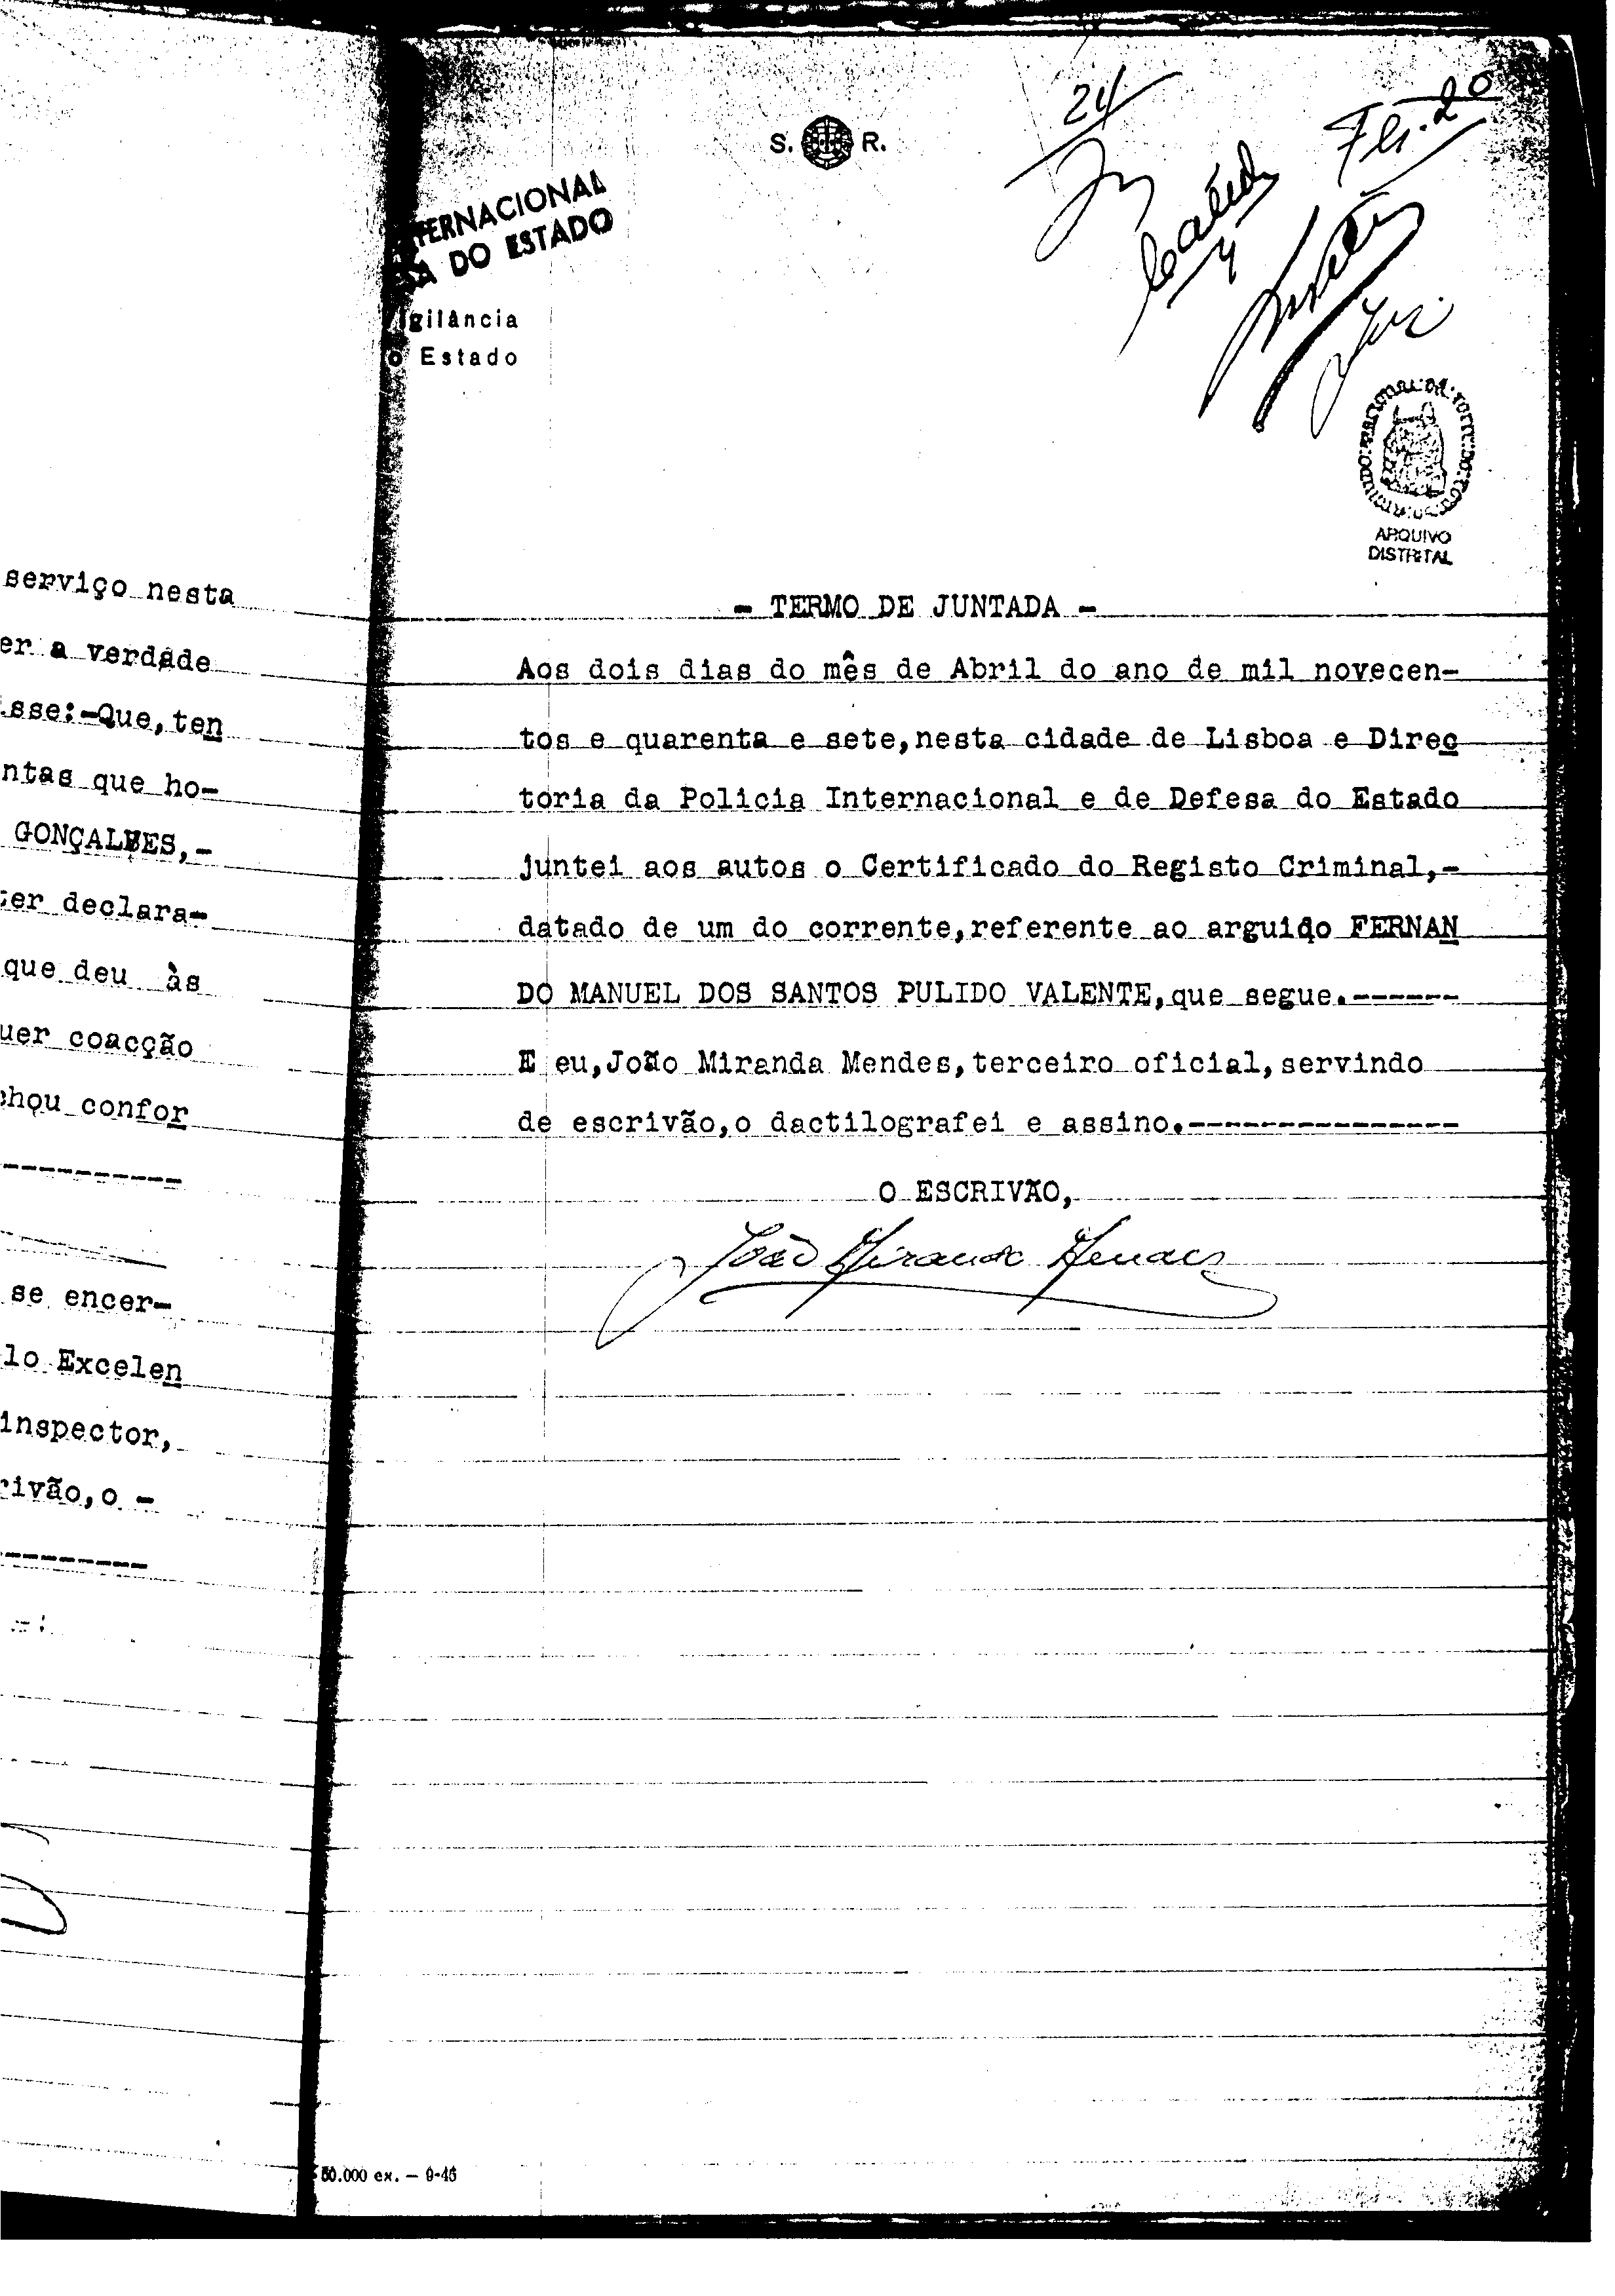 serviço nesta
er a verdade
isse:-Que,ten
ntas que ho-
GONÇALVES,-
ter declara-
que deu às
uer coacção
chou confor
-----------
se encer-
lo Excelen
inspector,
rivão,o -
---------
24
Fls. 20
S. R.
TERNACIONAL
SA DO ESTADO
igilância
o Estado
ARQUIVO
DISTRITAL
- TERMO DE JUNTADA -
Aos dois dias do mês de Abril do ano de mil novecen-
tos e quarenta e sete,nesta cidade de Lisboa e Direc
toria da Policia Internacional e de Defesa do Estado
juntei aos autos o Certificado do Registo Criminal,-
datado de um do corrente,referente ao arguido FERNAN
DO MANUEL DOS SANTOS PULIDO VALENTE,que segue.------
E eu,João Miranda Mendes,terceiro oficial,servindo
de escrivão,o dactilografei e assino.---------------
O ESCRIVÃO,
João Miranda Mendes
50.000 ex. — 9-45